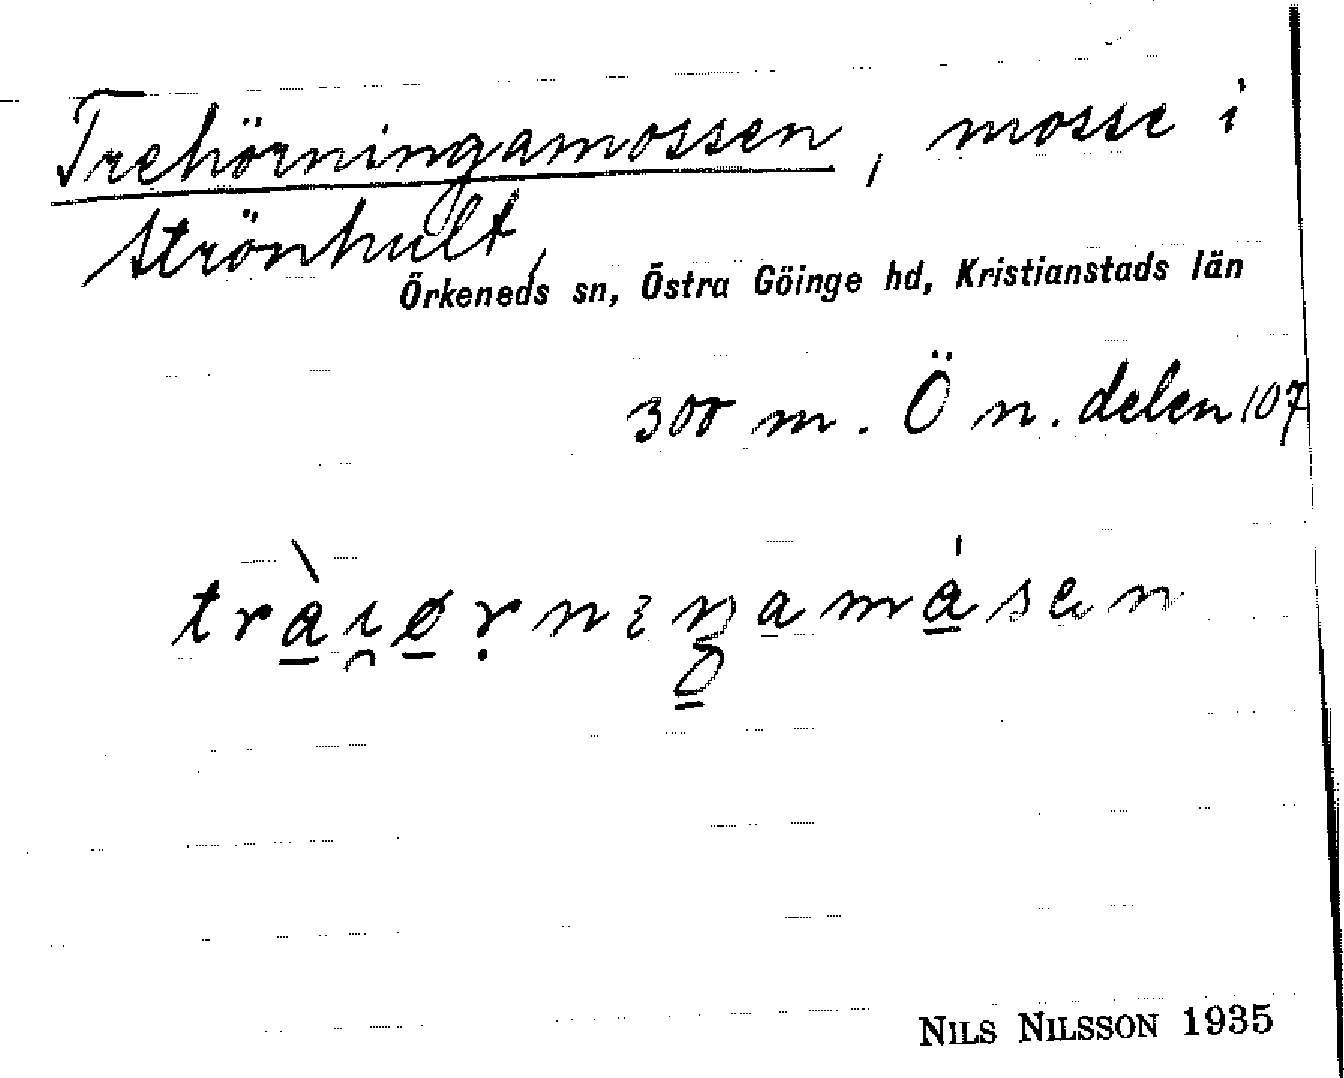 Trehörningamossen, mosse i
Strönhult,
Örkeneds sn, Östra Göinge hd, Kristianstads län
300 m. Ö n. delen 107
NILS NILSSON 1935